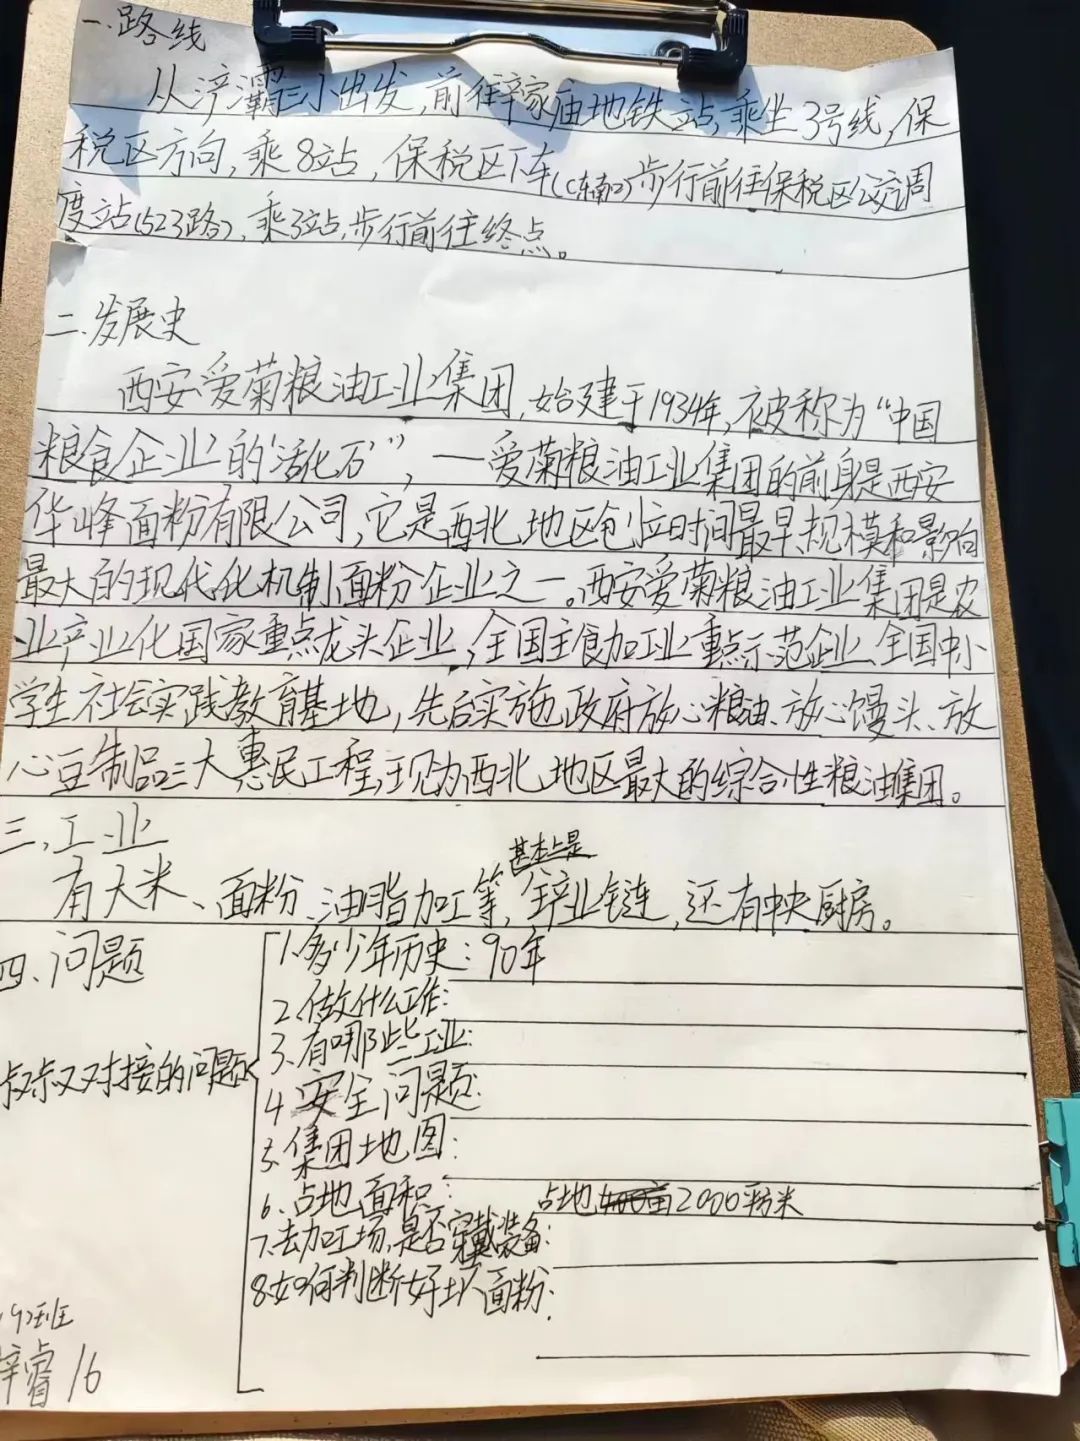 一.路线
从浐灞三小出发,前往辛家庙地铁站,乘坐3号线,保
税区方向,乘8站,保税区下车(C东南口)步行前往保税区公交调
度站(523路),乘3站,步行前往终点。
二.发展史
西安爱菊粮油工业集团,始建于1934年,被称为“中国
粮食企业的‘活化石’”,一爱菊粮油工业集团的前身是西安
华峰面粉有限公司,它是西北地区创立时间最早、规模和影响
最大的现代化机制面粉企业之一。西安爱菊粮油工业集团是农
业产业化国家重点龙头企业,全国主食加工业重点示范企业、全国中小
学生社会实践教育基地,先后实施政府放心粮油、放心馒头、放
心豆制品三大惠民工程,现为西北地区最大的综合性粮油集团。
三,工业
基本上是
有大米、面粉、油脂加工等,全产业链,还有中央厨房。
四、问题
1.多少年历史:90年
2.做什么工作:
3.有哪些工业:
叔叔对接的问题
4.安全问题:
5.集团地图:
6.占地面积: 占地2000平方米
7.去加工场,是否穿戴装备:
8.如何判断好坏面粉:
班
睿 16